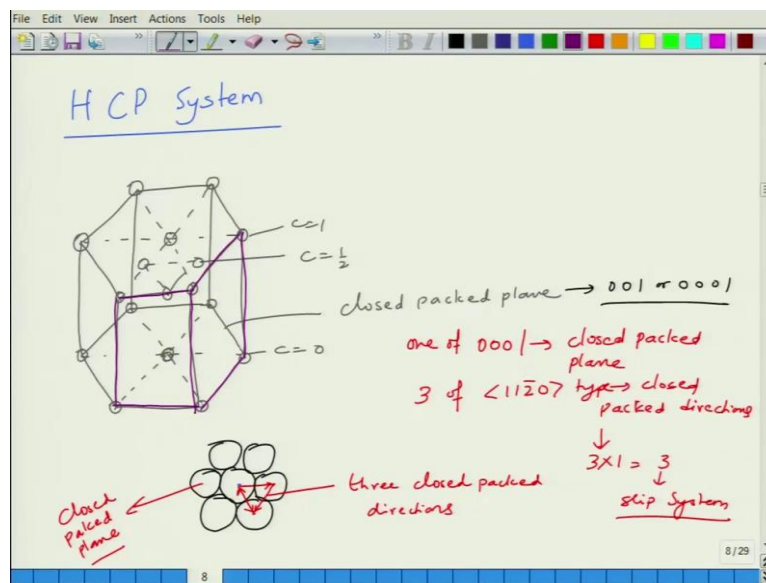 File Edit View Insert Actions Tools Help
B I
HCP System
c=1
c=1/2
closed packed plane → 001 or 0001
c=0
one of 0001 → closed packed
plane
3 of <112̄0> type → closed
packed directions
↓
3x1 = 3
↓
slip System
three closed packed
directions
closed
packed
plane
8/29
8